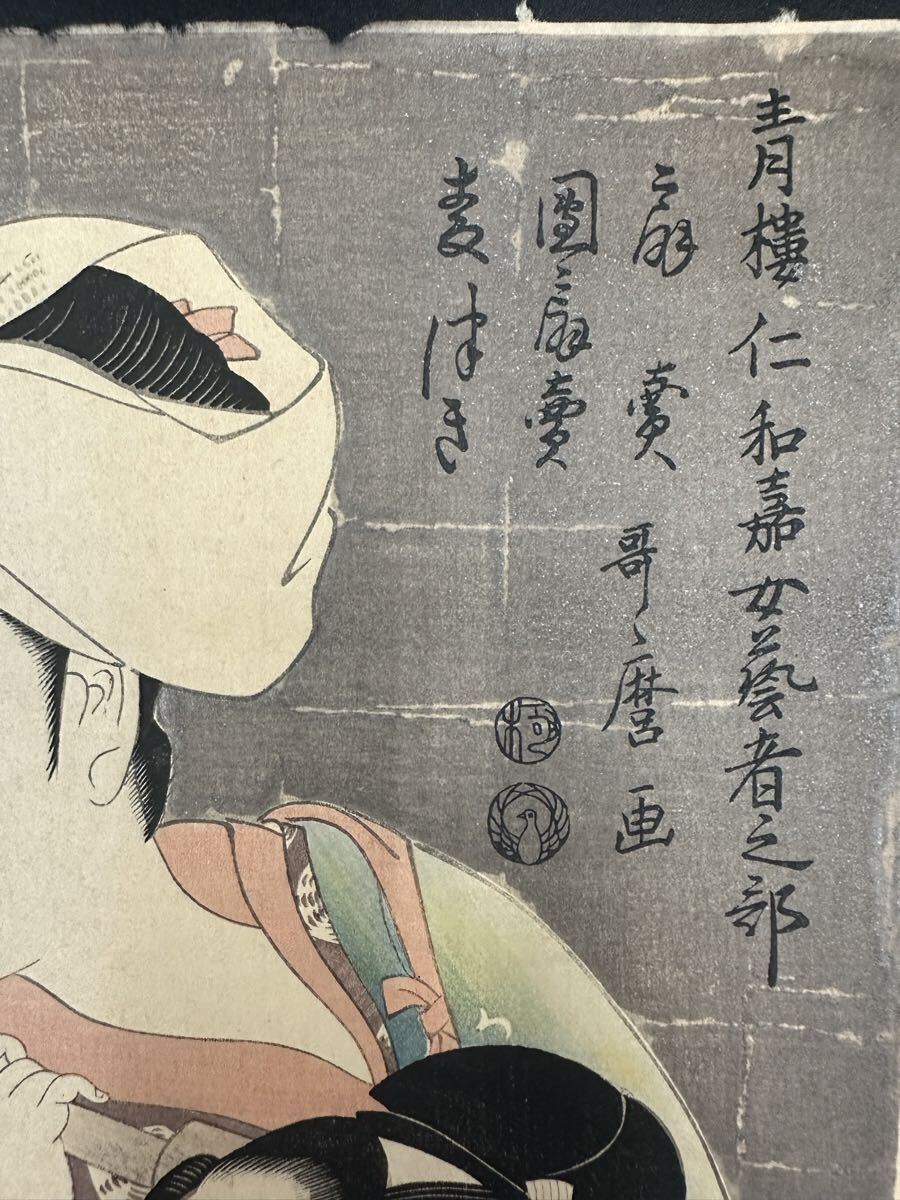 青樓仁和嘉女藝者之部
扇賣
團扇賣
麦つき
哥麿画
極